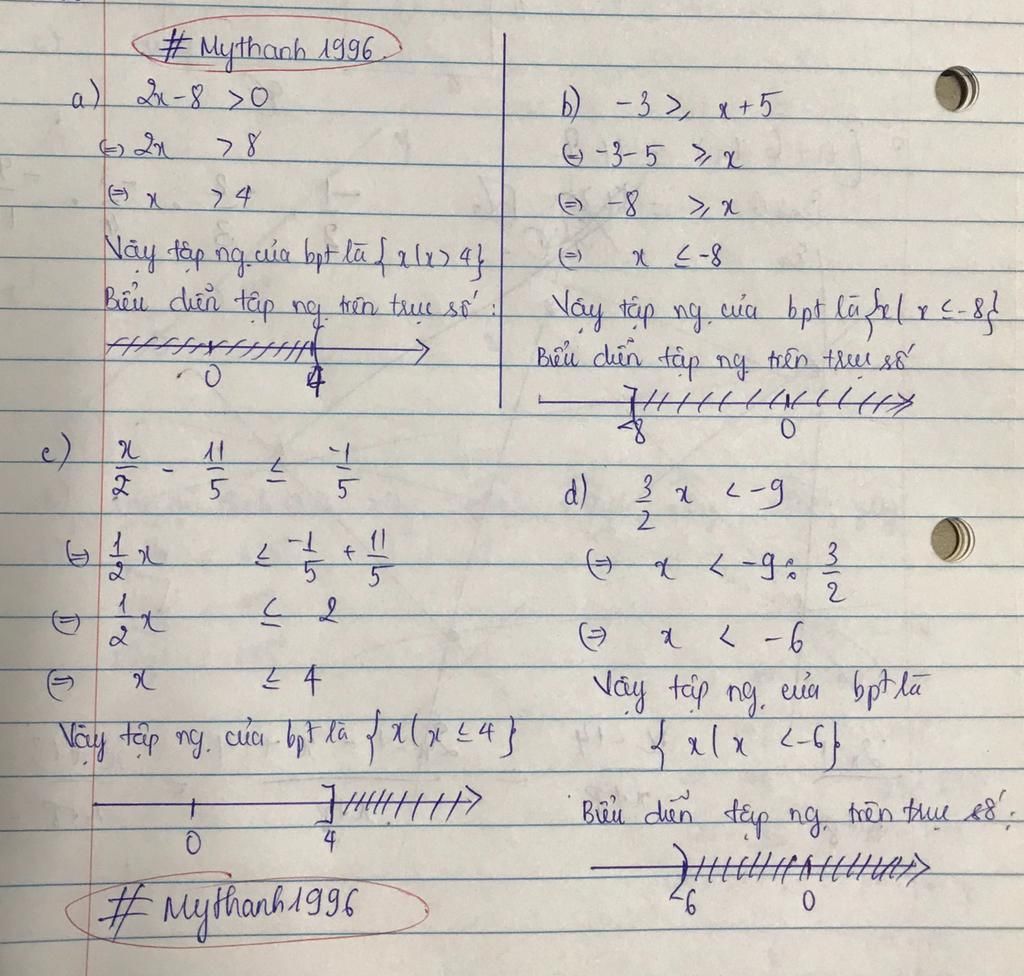 # Mythanh 1996
a) 2x-8 >0
(=) 2x > 8
(=) x > 4
Vậy tập ng. của bpt là {x|x>4}
Biểu diễn tập ng. trên trục số :
0 4
b) -3 ≥ x+5
(=) -3-5 ≥ x
(=) -8 ≥ x
(=) x ≤ -8
Vậy tập ng. của bpt là {x| x ≤ -8}
Biểu diễn tập ng trên trục số
-8 0
c) x/2 - 11/5 ≤ -1/5
(=) 1/2 x ≤ -1/5 + 11/5
(=) 1/2 x ≤ 2
(=) x ≤ 4
Vậy tập ng. của bpt là {x|x ≤ 4}
0 4
d) 3/2 x < -9
(=) x < -9 : 3/2
(=) x < -6
Vậy tập ng. của bpt là
{ x| x < -6}
Biểu diễn tập ng. trên trục số :
-6 0
# Mythanh1996